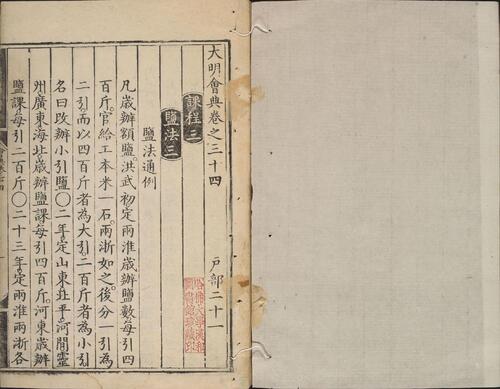 大明會典卷之三十四
戶部二十一
課程三
鹽法三
鹽法通例
凡歲辦額鹽洪武初定兩淮歲辦鹽數每引四
百斤官給工本米一石兩浙如之後分一引為
二引而以四百斤者為大引二百斤者為小引
名曰改辦小引鹽○二年定山東北平河間靈
州廣東海北歲辦鹽課每引四百斤河東歲辦
鹽課每引二百斤○二十三年定兩淮兩浙各